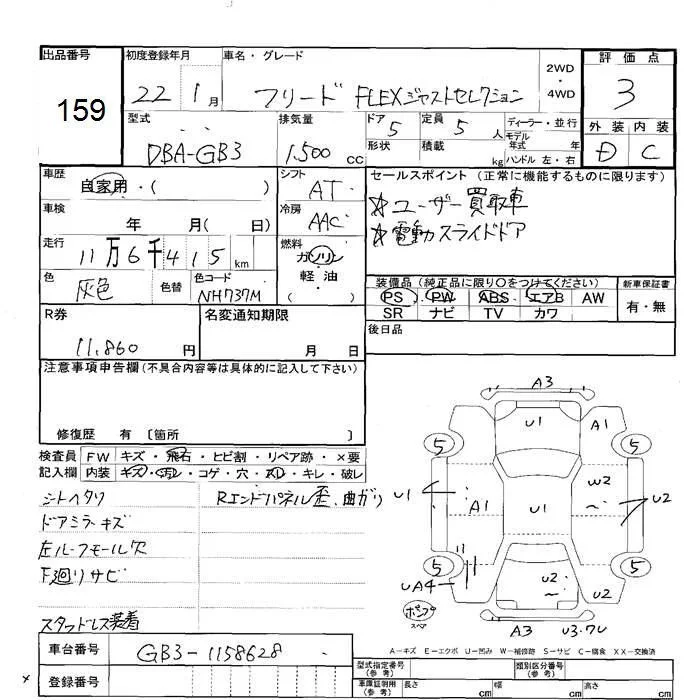 出品番号 初度登録年月 車名・グレード 2WD・4WD 評価点
159 22 1月 フリード FLEXジャストセレクション 3
型式 排気量 ドア 5 定員 5人 ディーラー・並行 外装 内装
DBA-GB3 1,500cc 形状 積載 kg モデル年式 年 ハンドル 左・右 D C
車歴 自家用・( ) シフト AT セールスポイント(正常に機能するものに限ります)
車検 年 月( 日) 冷房 AAC ☆ユーザー買取車
走行 11万6千415km 燃料 ガソリン・軽油 ( ) ☆電動スライドドア
色 灰色 色替 色コード NH737M 装備品(純正品に限り〇をつけてください) 新車保証書
PS PW ABS エアB AW 有・無
SR ナビ TV カワ
R券 11,860円 名変通知期限 月 日 後日品
注意事項申告欄(不具合内容等は具体的に記入して下さい)
修復歴 有 〔箇所 〕
検査員記入欄 FW キズ・飛石・ヒビ割・リペア跡・×要
内装 キズ・汚レ・コゲ・穴・スレ・キレ・破レ
シートヘタリ Rエンドパネル歪、曲がり
ドアミラーキズ
左ルーフモール欠
下廻りサビ
スタッドレス装着
A3
U1 A1
5 5
U1 A1 U1 W2 U2
5 5
UA4 U2 U2
スペア
A3 U3.7U
A-キズ E-エクボ U-凹み W-補修跡 S-サビ C-腐食 XX-交換済
車台番号 GB3-1158628
登録番号
型式指定番号(参考) 類別区分番号(参考)
車庫証明用(参考) 長さ cm 幅 cm 高さ cm